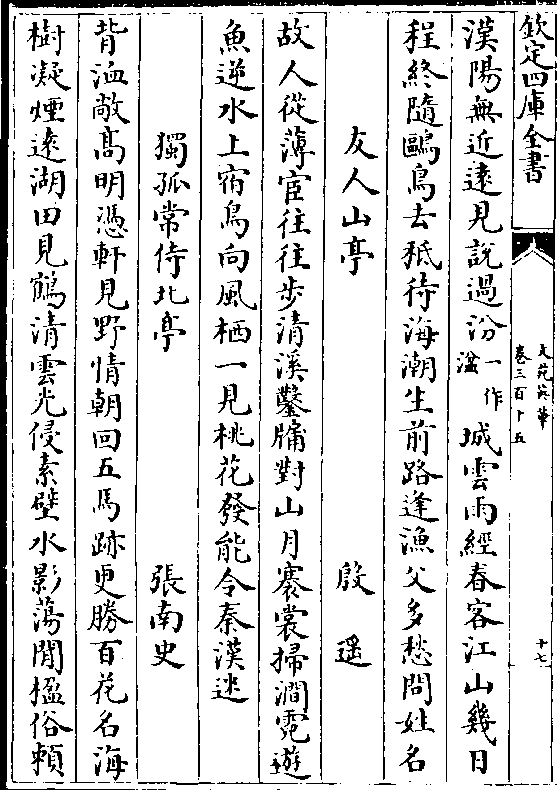 欽定四庫全書
文苑英華
卷三百十五
十七
漢陽無近遠見說過汾一作湓城雲雨經春客江山幾日
程終隨鷗鳥去秪待海潮生前路逢漁父多愁問姓名
友人山亭 殷遥
故人從薄宦往往步清溪鑿牖對山月褰裳掃澗霓遊
魚逆水上宿鳥向風栖一見桃花發能令秦漢迷
獨孤常侍北亭 張南史
背洫敞高明憑軒見野情朝回五馬跡更勝百花名海
樹凝煙遠湖田見鶴清雲光侵素壁水影蕩閒楹俗賴